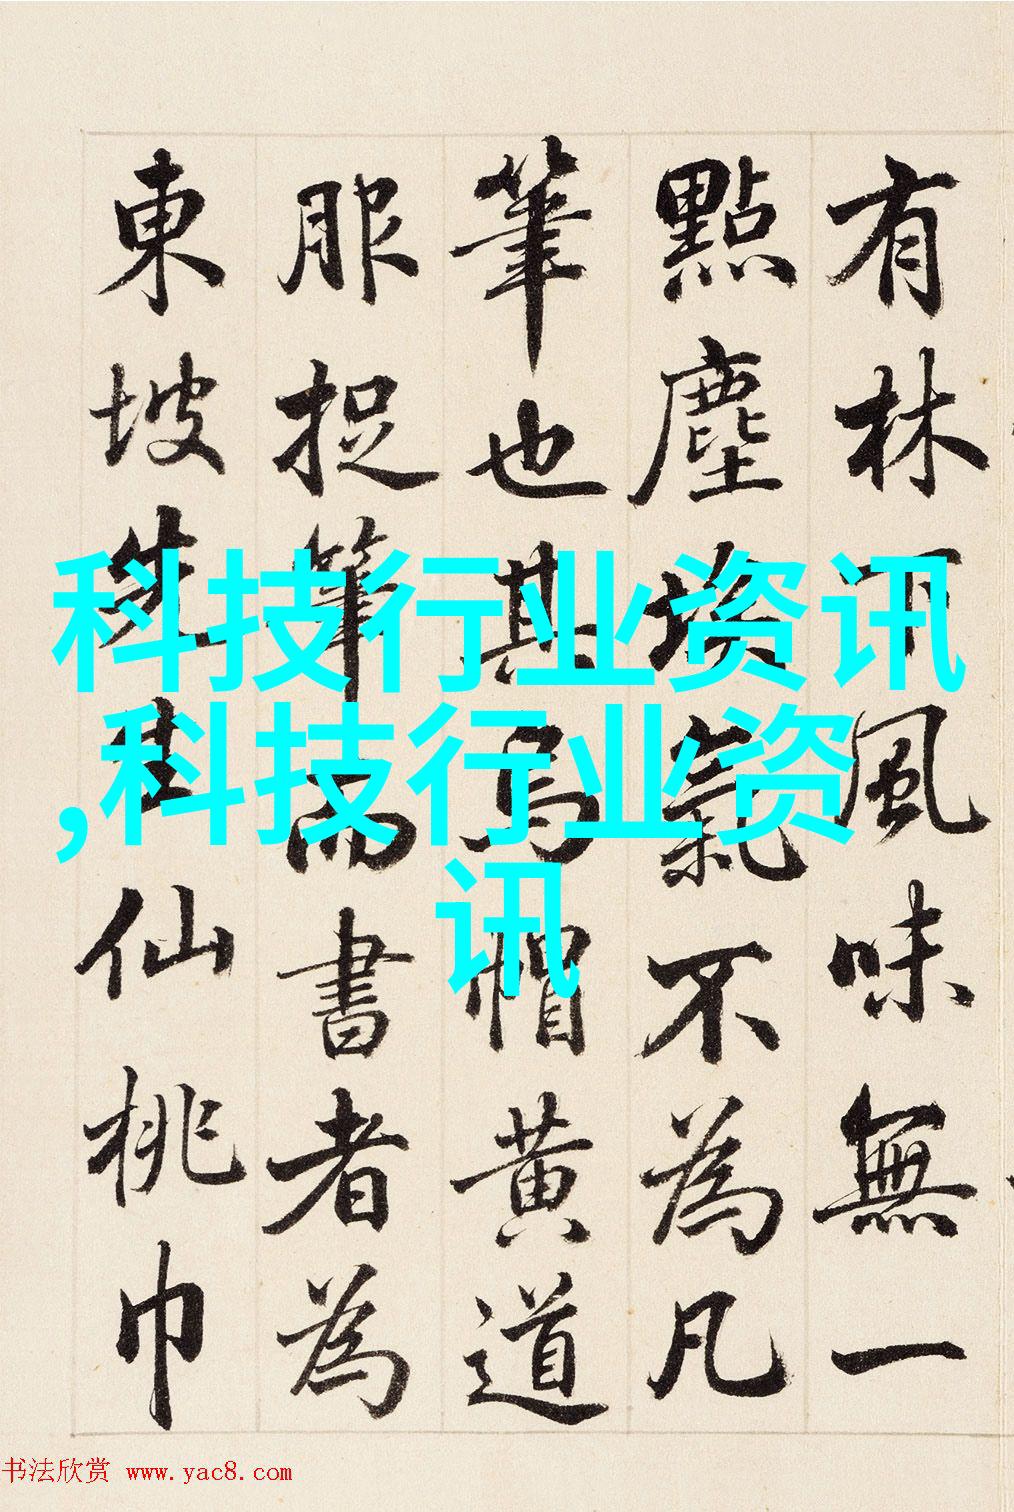 有林下風味無一
點塵埃氣不為凡
筆也其烏帽黃道
服捉筆而書者為
東坡 仙桃巾
科技行业资讯
,科技行业资
讯
书法欣赏 www.yac8.com